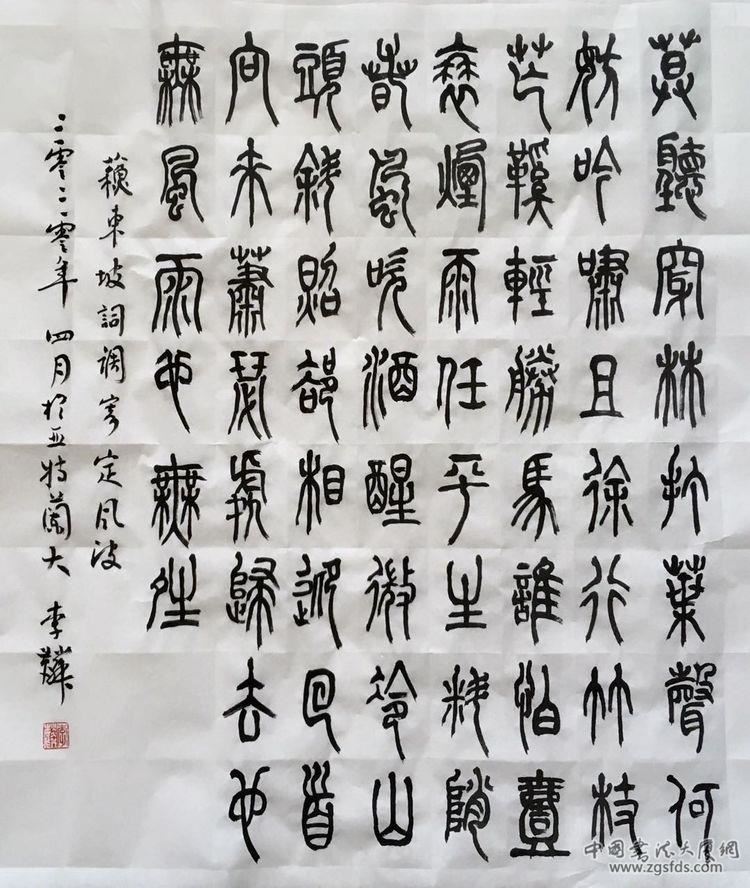 莫聽穿林打葉聲何
妨吟嘯且徐行竹杖
芒鞵輕勝馬誰怕壹
蓑煙雨任平生料陗
春風吹酒醒微冷山
頭斜照卻相迎回首
向來蕭瑟處歸去也
無風雨也無晴
蘇東坡詞調寄定風波
二零二零年四月於亚特蘭大 李
中國書法大厦網
www.zgsfds.com